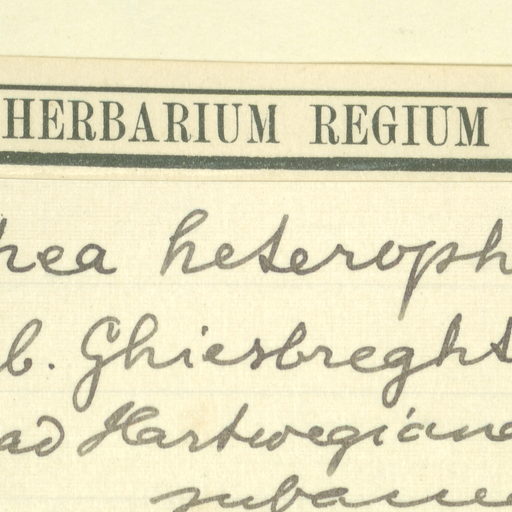 HERBARIUM REGIUM
hea heteroph
b. Ghiesbreght
ad Hartwegiana